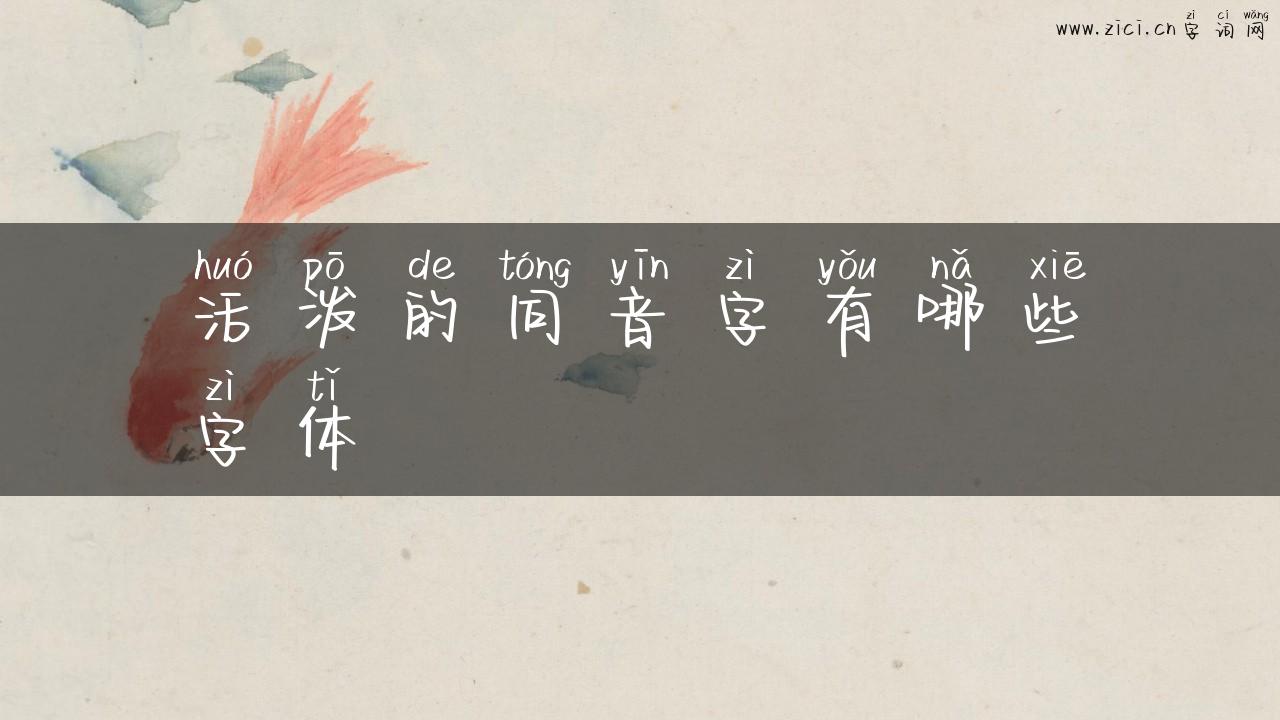 zì cí wǎng
www.zici.cn字词网
huó pō de tóng yīn zì yǒu nǎ xiē
活泼的同音字有哪些
zì tǐ
字体